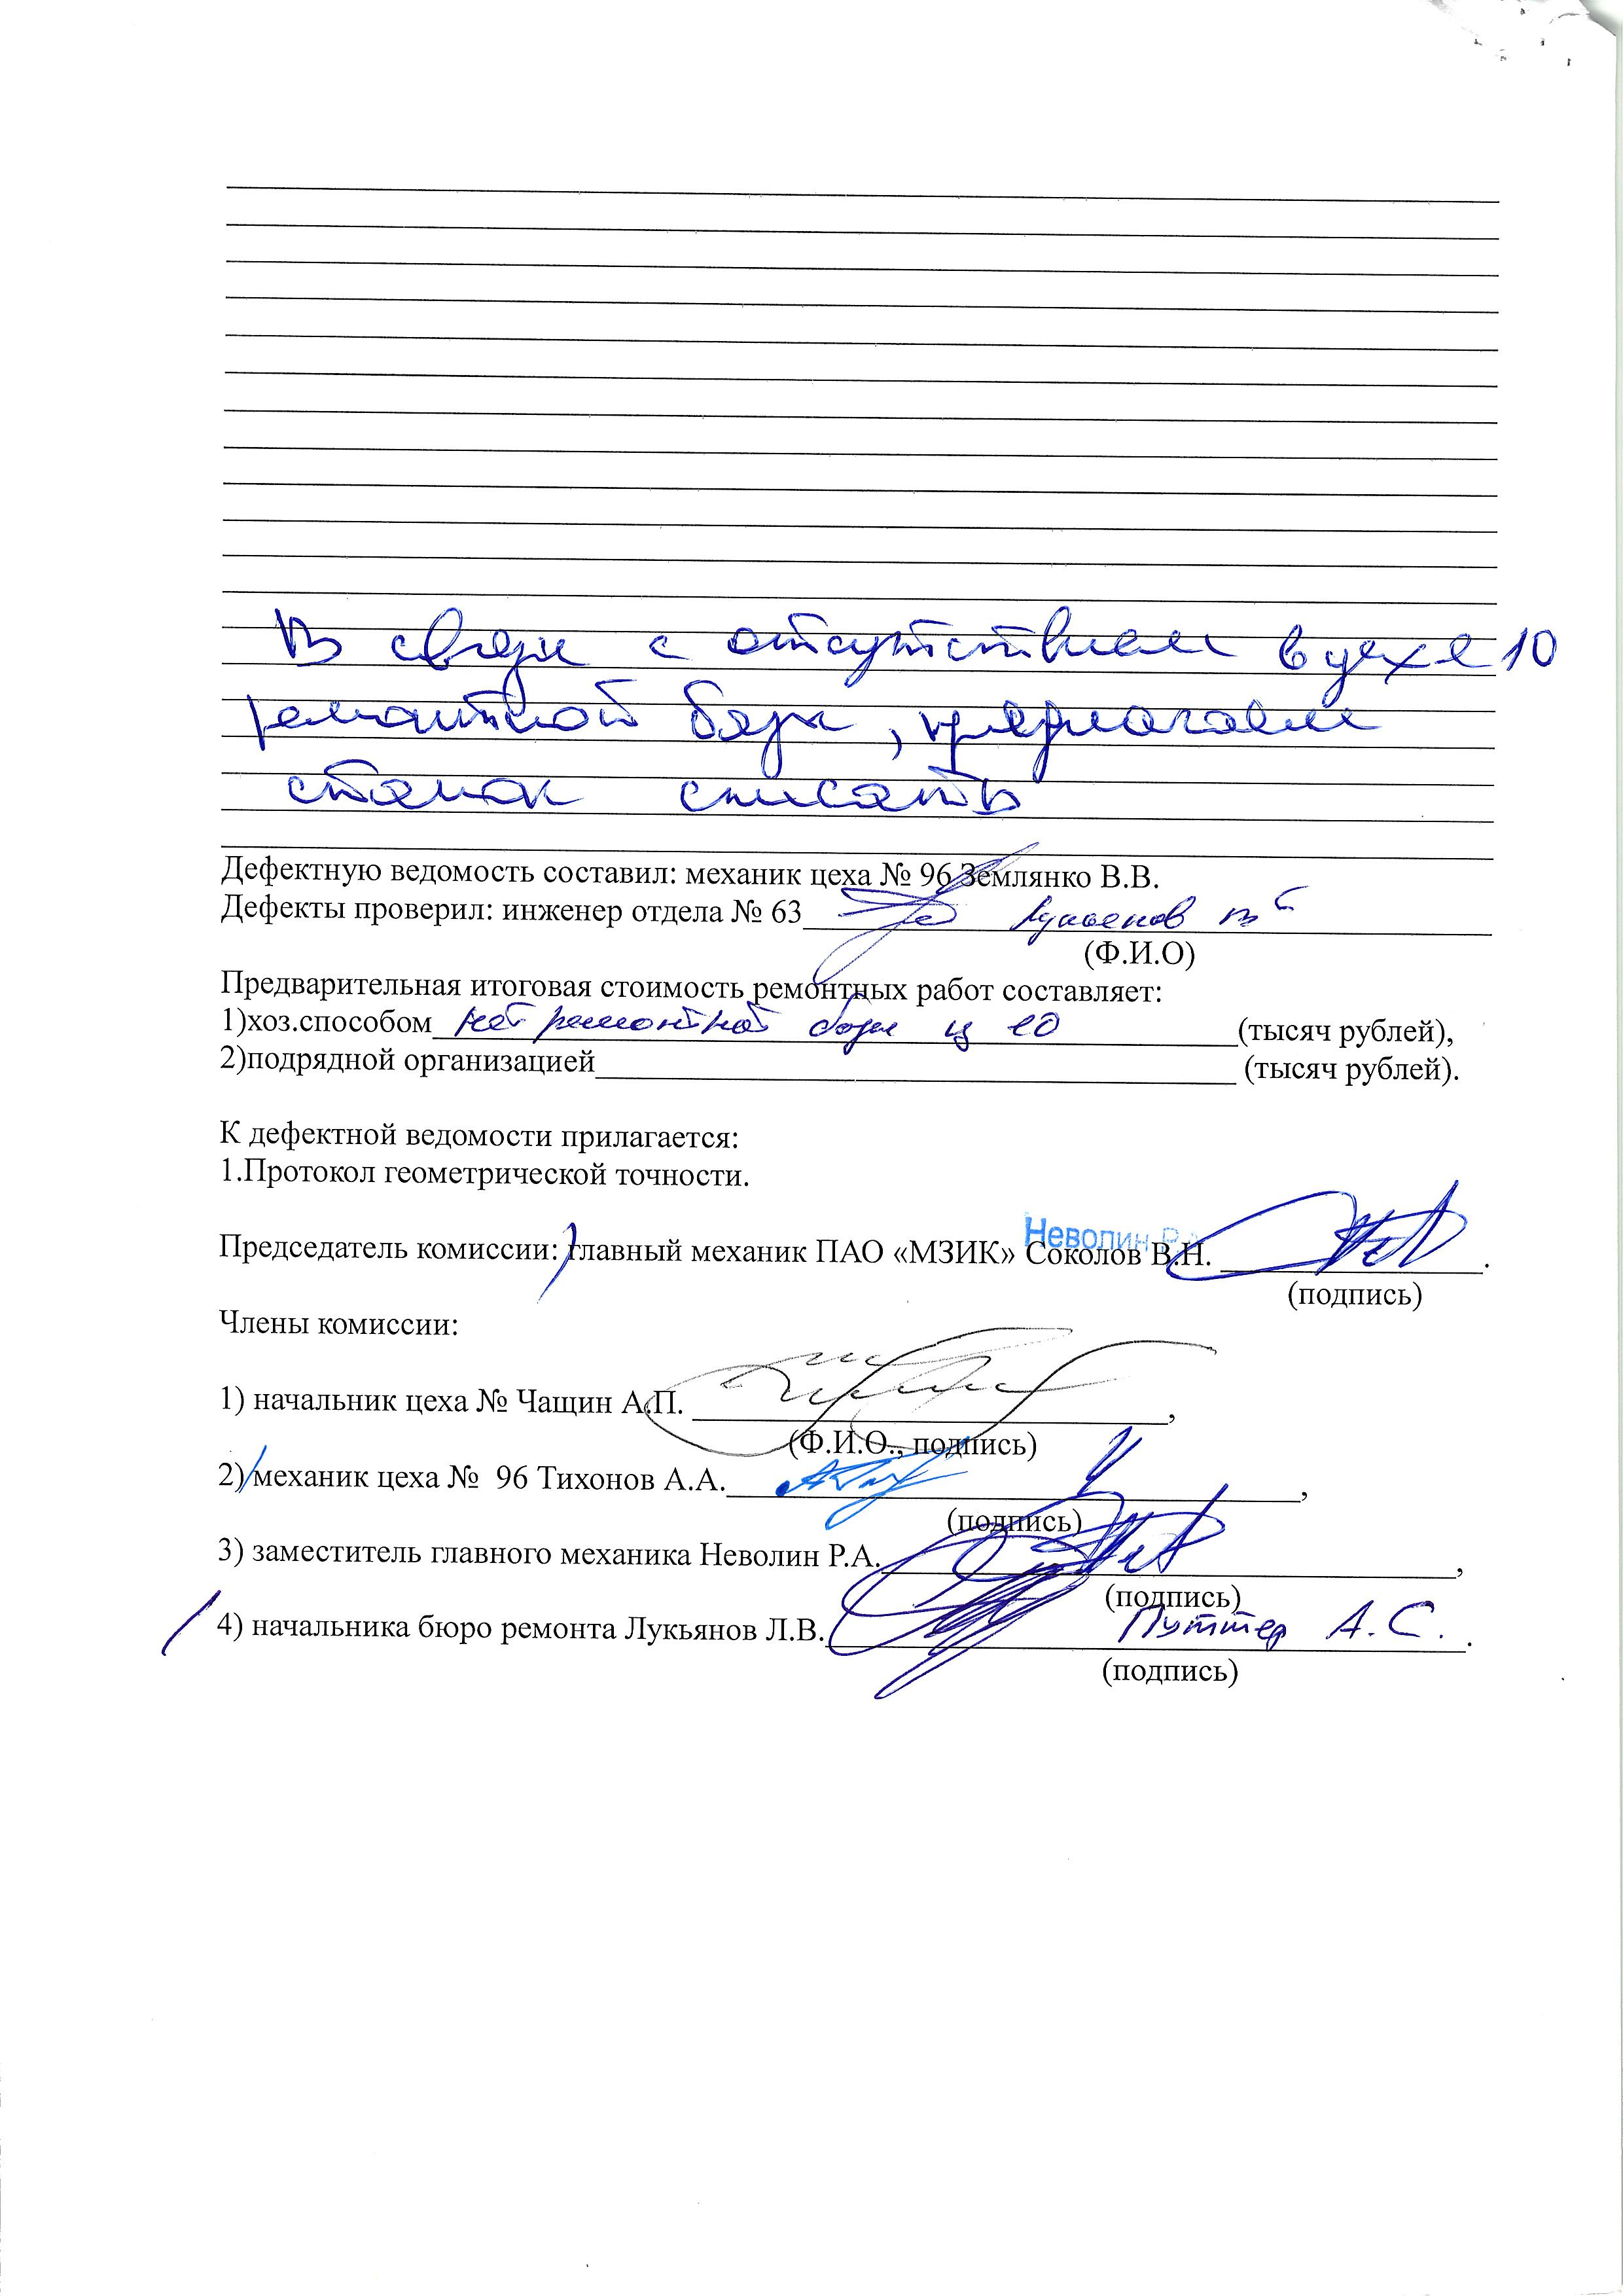 В связи с отсутствием в цехе 10
ремонтной базы, предлагаем
станок списать
Дефектную ведомость составил: механик цеха № 96 Землянко В.В.
Дефекты проверил: инженер отдела № 63 Лукьянов
(Ф.И.О)
Предварительная итоговая стоимость ремонтных работ составляет:
1)хоз.способом нет ремонтной базы ц 10 (тысяч рублей),
2)подрядной организацией (тысяч рублей).
К дефектной ведомости прилагается:
1.Протокол геометрической точности.
Неволин Р.
Председатель комиссии: главный механик ПАО «МЗИК» Соколов В.Н.
(подпись)
Члены комиссии:
1) начальник цеха № Чащин А.П.
(Ф.И.О., подпись)
2) механик цеха № 96 Тихонов А.А.
(подпись)
3) заместитель главного механика Неволин Р.А.
(подпись)
4) начальника бюро ремонта Лукьянов Л.В. Путтер А.С.
(подпись)